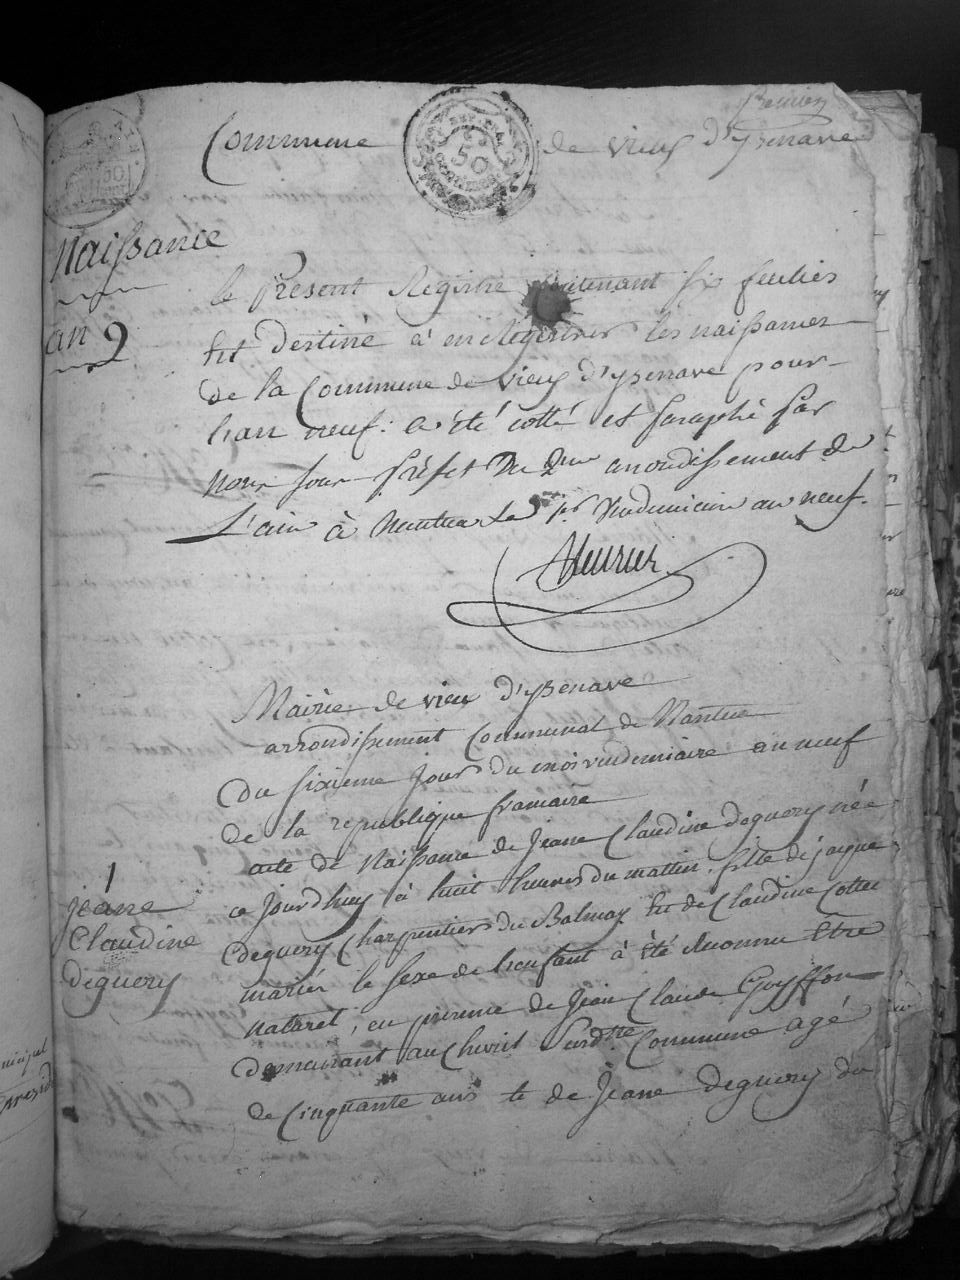 Premier
Commune de vieux d'ysenave
REP. FRA.
50
centimes
Naissance
an 9
le Present Registre contenant six feullies
Est destiné à enregistrer les naissances
de la Commune de vieux d'ysenave pour
l'an neuf. a été cotté et paraphé par
Nous sous préfet du 2me arrondissement de
L'ain à Nantua le 1er Vendemiaire an neuf.
Mairie de vieux d'ysenave
arrondissement Communal de Nantua
Du sixieme jour du mois vendemiaire an neuf
de la republique francaise
acte de Naissance de Jeane Claudine deguery née
ce jourdhuy à huit heures du mattin, fille de jaque
deguery Charpentier du Balmay Et de Claudine Cottet
mariés le sexe de l'enfant à été reconnu Etre
naturel, en présence de Jean Claude Goyffon
demeurant au Chevril susdne Commune agé
de Cinquante ans Et de Jeane deguery du
1
jeane
Claudine
deguery